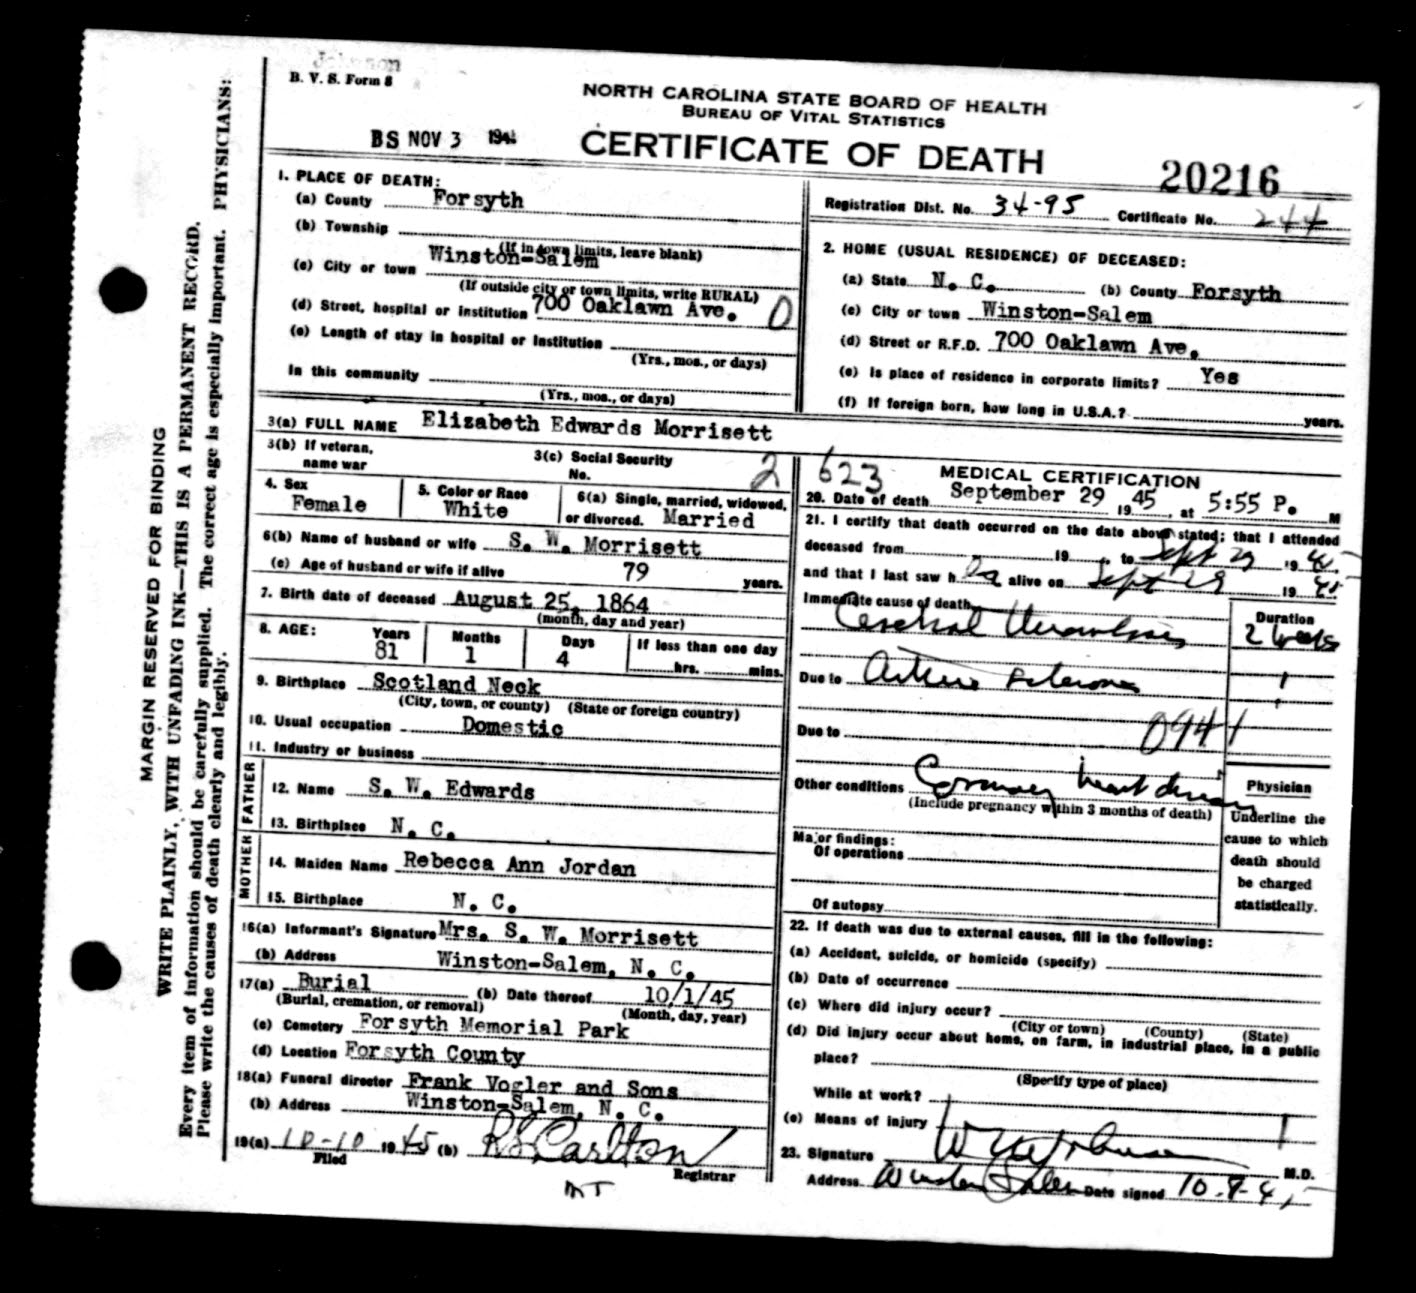 Johnson
B. V. S. Form 8
NORTH CAROLINA STATE BOARD OF HEALTH
BUREAU OF VITAL STATISTICS
BS NOV 3 194
CERTIFICATE OF DEATH
20216
1. PLACE OF DEATH:
(a) County Forsyth
(b) Township
(If in town limits, leave blank)
(c) City or town Winston-Salem
(If outside city or town limits, write RURAL)
(d) Street, hospital or institution 700 Oaklawn Ave. 0
(e) Length of stay in hospital or institution
(Yrs., mos., or days)
In this community
(Yrs., mos., or days)
Registration Dist. No. 34-95 Certificate No. 244
2. HOME (USUAL RESIDENCE) OF DECEASED:
(a) State N. C. (b) County Forsyth
(c) City or town Winston-Salem
(d) Street or R.F.D. 700 Oaklawn Ave.
(e) Is place of residence in corporate limits? Yes
(f) If foreign born, how long in U.S.A.? years.
3(a) FULL NAME Elizabeth Edwards Morrisett
3(b) If veteran, name war
3(c) Social Security No.
2 623
4. Sex Female
5. Color or Race White
6(a) Single, married, widowed, or divorced. Married
6(b) Name of husband or wife S. W. Morrisett
(c) Age of husband or wife if alive 79 years.
7. Birth date of deceased August 25, 1864
(month, day and year)
8. AGE: Years 81 Months 1 Days 4 If less than one day hrs. mins.
9. Birthplace Scotland Neck
(City, town, or county) (State or foreign country)
10. Usual occupation Domestic
11. Industry or business
FATHER
12. Name S. W. Edwards
13. Birthplace N. C.
MOTHER
14. Maiden Name Rebecca Ann Jordan
15. Birthplace N. C.
16(a) Informant's Signature Mrs. S. W. Morrisett
(b) Address Winston-Salem, N. C.
17(a) Burial (b) Date thereof 10/1/45
(Burial, cremation, or removal) (Month, day, year)
(c) Cemetery Forsyth Memorial Park
(d) Location Forsyth County
18(a) Funeral director Frank Vogler and Sons
(b) Address Winston-Salem, N. C.
19(a) 10-10 1945 (b) R S Carlton
Filed Registrar
MT
MEDICAL CERTIFICATION
20. Date of death September 29 1945, at 5:55 P. M
21. I certify that death occurred on the date above stated; that I attended
deceased from 19 to Sept 29 1945
and that I last saw h alive on Sept 29 1945
Immediate cause of death Cerebral Thrombosis
Duration
2 weeks
Due to Arterio Sclerosis
Due to
0941
Other conditions Coronary heart disease
(Include pregnancy within 3 months of death)
Major findings:
Of operations
Of autopsy
Physician
Underline the
cause to which
death should
be charged
statistically.
22. If death was due to external causes, fill in the following:
(a) Accident, suicide, or homicide (specify)
(b) Date of occurrence
(c) Where did injury occur?
(City or town) (County) (State)
(d) Did injury occur about home, on farm, in industrial place, in a public
place?
(Specify type of place)
While at work?
(e) Means of injury
23. Signature M.D.
Address Winston Salem Date signed 10-9-45
MARGIN RESERVED FOR BINDING
WRITE PLAINLY, WITH UNFADING INK—THIS IS A PERMANENT RECORD.
Every item of information should be carefully supplied. The correct age is especially important. PHYSICIANS:
Please write the causes of death clearly and legibly.